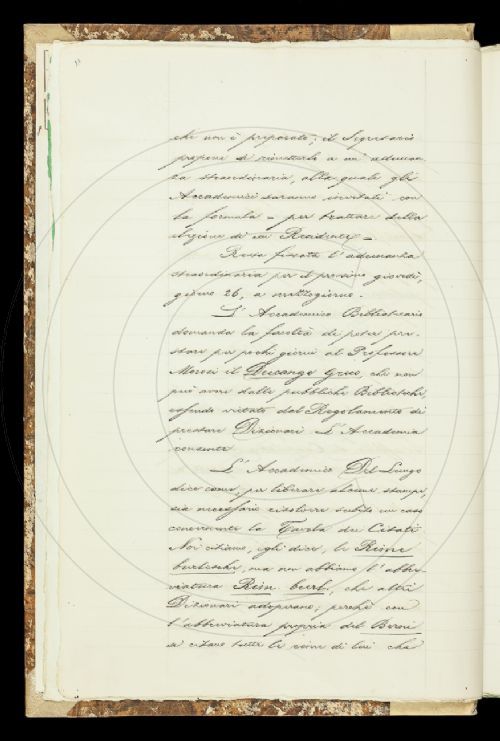 chi non è preparato; il Segretario
propone di rimetterla a un'adunan
za straordinaria, alla quale gli
Accademici saranno invitati con
la formula = per trattare della
elezione di un Residente =
Resta fissata l'adunanza
straordinaria per il prossimo giovedì,
giorno 26, a mezzogiorno.
L'Accademico Bibliotecario
domanda la facoltà di poter pre-
stare per pochi giorni al Professore
Morosi il Ducange Greco, che non
può avere dalle pubbliche Biblioteche,
essendo vietato dal Regolamento di
prestare Dizionari. L'Accademia
consente.
L'Accademico Del Lungo
dice come, per liberare alcune stampe,
sia necessario risolvere subito un caso
concernente la Tavola dei Citati.
Noi citiamo, egli dice, le Rime
burlesche, ma non abbiamo l'abbre-
viatura Rim. burl., che altri
Dizionari adoperano; perchè con
l'abbreviatura propria del Berni
si citano tutte le rime di lui che